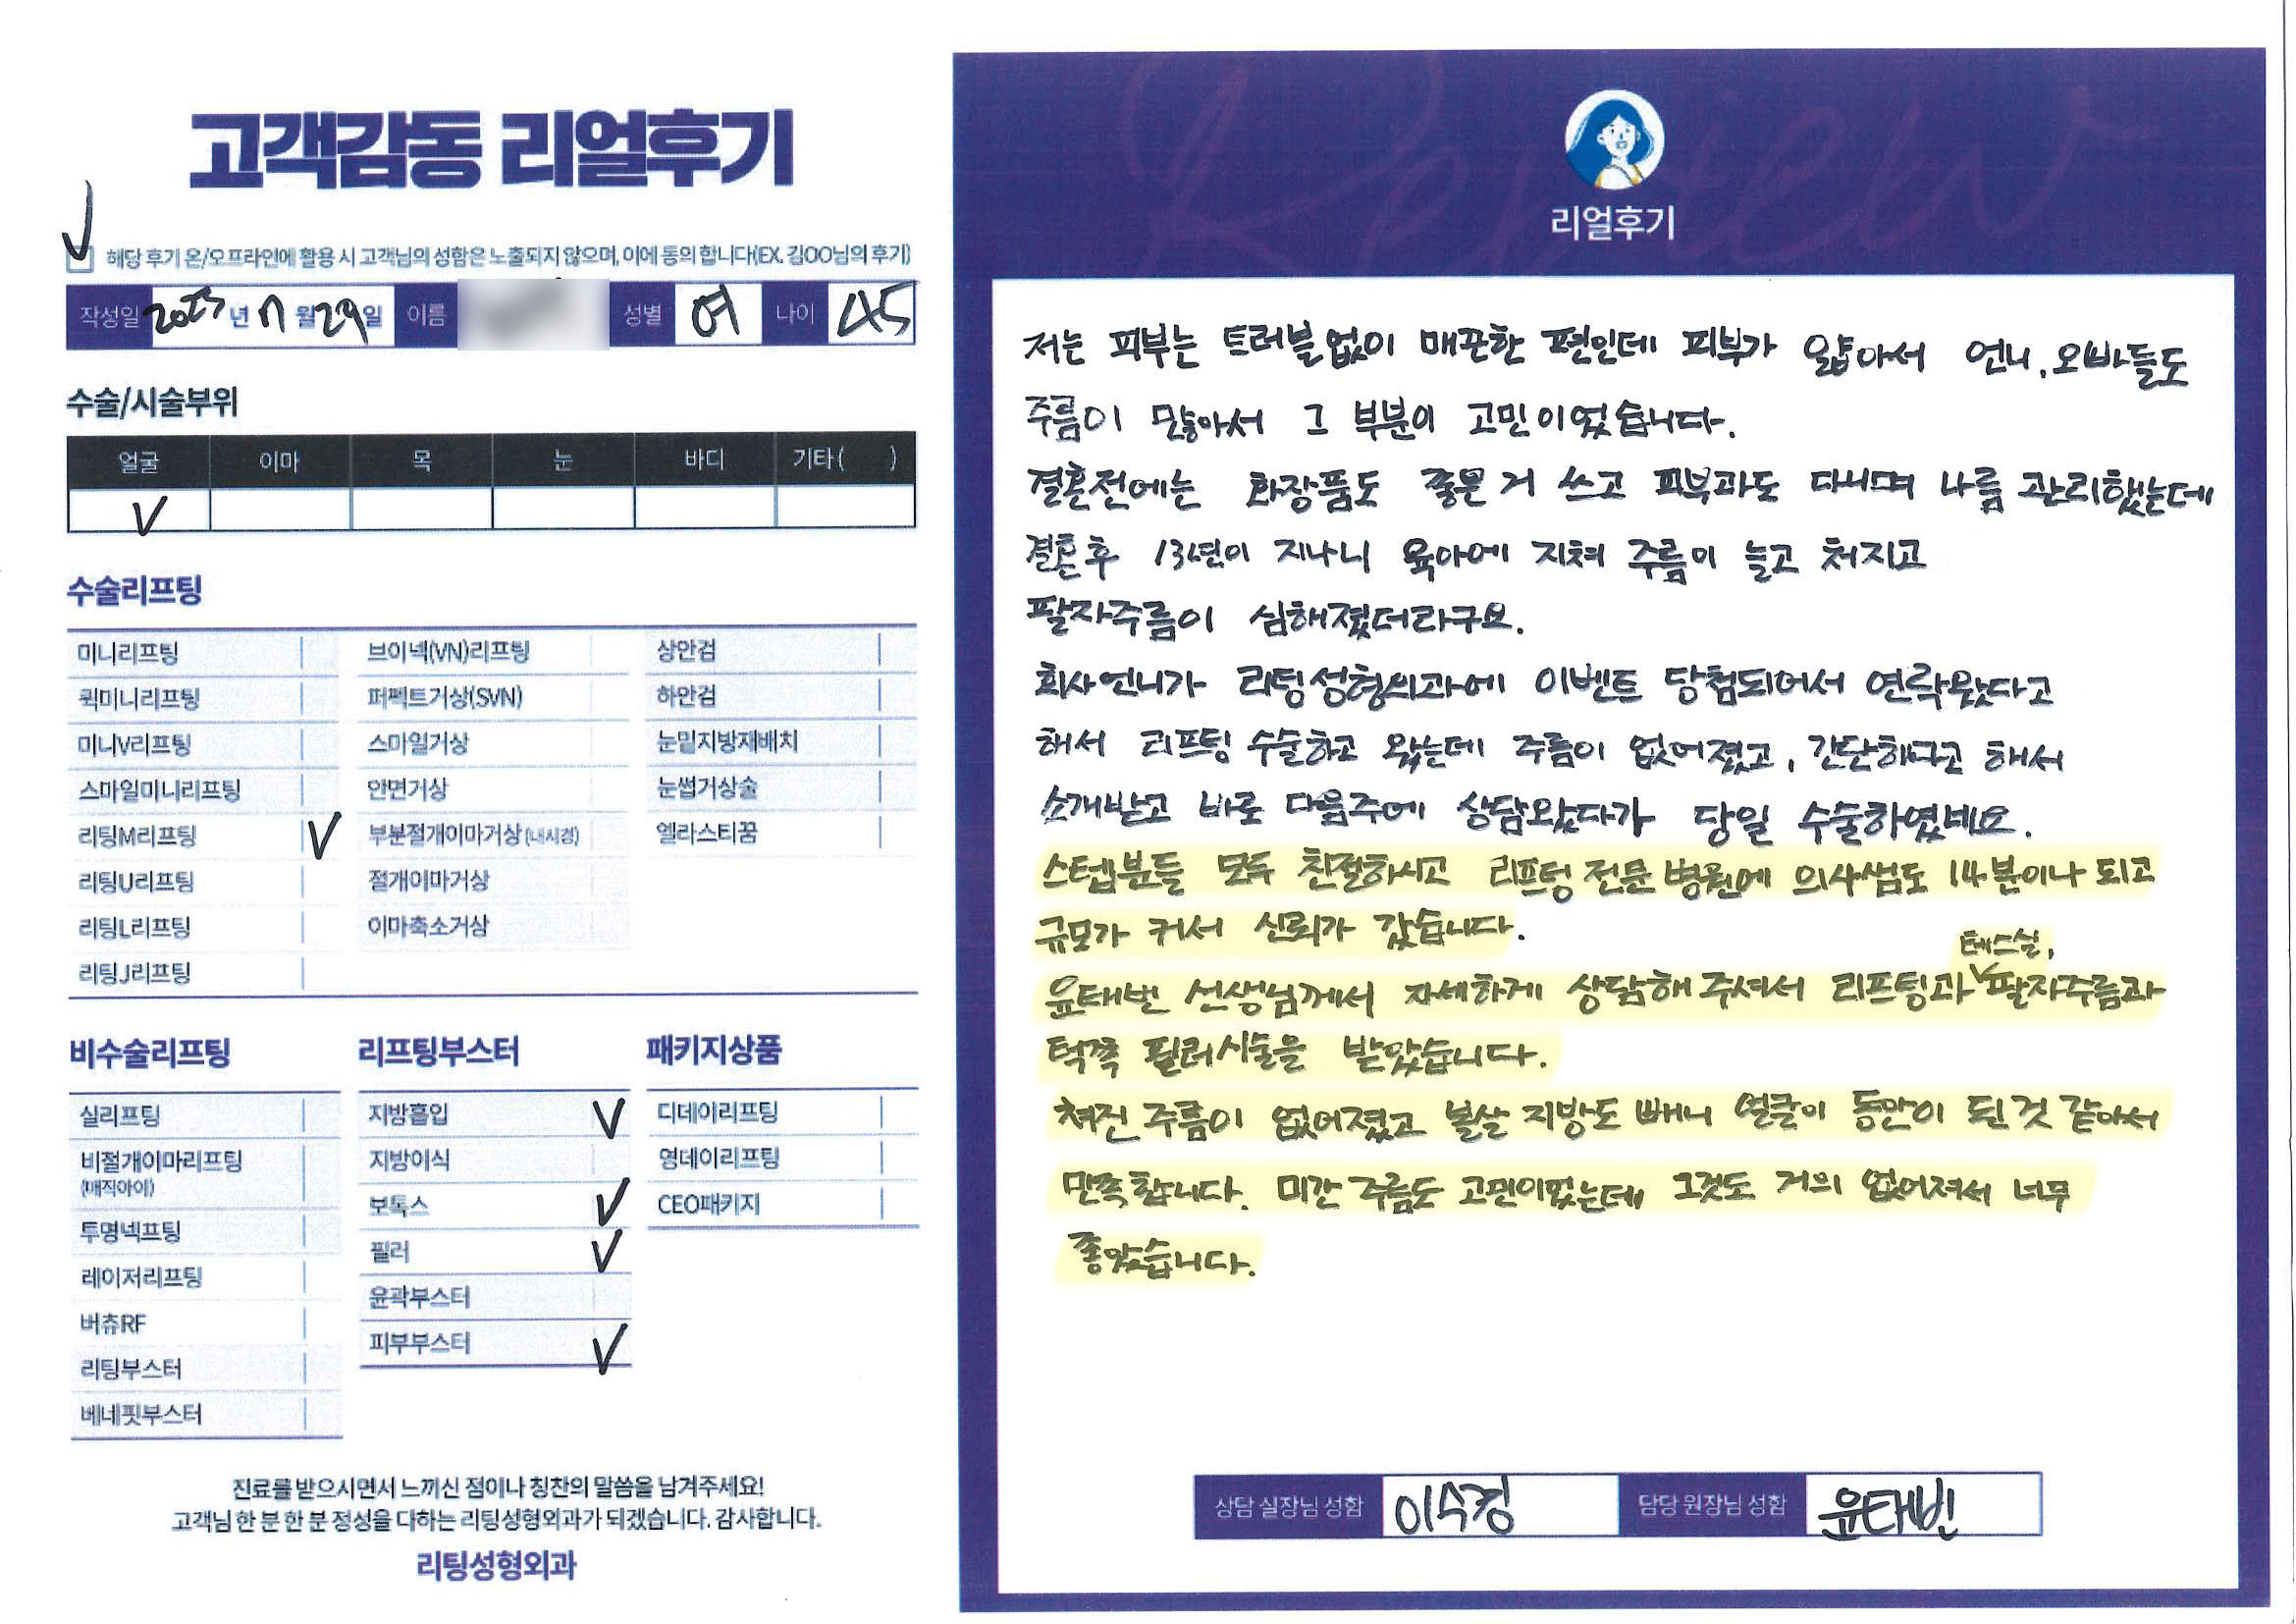 고객감동 리얼후기
해당 후기 온/오프라인에 활용 시 고객님의 성함은 노출되지 않으며, 이에 동의 합니다(EX. 김OO님의 후기)
작성일 2025년 11월 29일 이름 성별 여 나이 45
수술/시술부위
얼굴 이마 목 눈 바디 기타( )
V
수술리프팅
미니리프팅 브이넥(VN)리프팅 상안검
퀵미니리프팅 퍼펙트거상(SVN) 하안검
미니V리프팅 스마일거상 눈밑지방재배치
스마일미니리프팅 안면거상 눈썹거상술
리팅M리프팅 V 부분절개이마거상(내시경) 엘라스티꿈
리팅U리프팅 절개이마거상
리팅L리프팅 이마축소거상
리팅J리프팅
비수술리프팅 리프팅부스터 패키지상품
실리프팅 지방흡입 V 디데이리프팅
비절개이마리프팅 지방이식 영데이리프팅
(매직아이)
보톡스 V CEO패키지
투명넥프팅 필러 V
레이저리프팅 윤곽부스터
버츄RF 피부부스터 V
리팅부스터
베네핏부스터
진료를 받으시면서 느끼신 점이나 칭찬의 말씀을 남겨주세요!
고객님 한 분 한 분 정성을 다하는 리팅성형외과가 되겠습니다. 감사합니다.
리팅성형외과
Review
리얼후기
저는 피부는 트러블없이 매끈한 편인데 피부가 얇아서 언니, 오빠들도
주름이 많아서 그 부분이 고민이었습니다.
결혼전에는 화장품도 좋은 거 쓰고 피부과도 다니며 나름 관리했는데
결혼후 13년이 지나니 육아에 지쳐 주름이 늘고 처지고
팔자주름이 심해졌더라구요.
회사언니가 리팅성형외과에 이벤트 당첨되어서 연락왔다고
해서 리프팅 수술하고 왔는데 주름이 없어졌고, 간단하다고 해서
소개받고 바로 다음주에 상담왔다가 당일 수술하였네요.
스텝분들 모두 친절하시고 리프팅 전문 병원에 의사쌤도 14분이나 되고
규모가 커서 신뢰가 갔습니다.
테스실,
윤태빈 선생님께서 자세하게 상담해 주셔서 리프팅과 팔자주름과
턱쪽 필러시술을 받았습니다.
쳐진 주름이 없어졌고 볼살 지방도 빼니 얼굴이 동안이 된 것 같아서
만족합니다. 미간 주름도 고민이었는데 그것도 거의 없어져서 너무
좋았습니다.
상담 실장님 성함 이수경 담당 원장님 성함 윤태빈